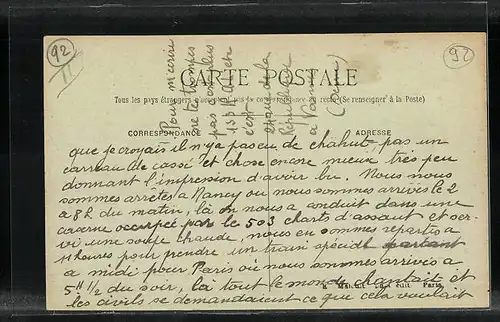 92
II
92
Pour m'écrire
ne te trompes
pas
153 R
Place de la
République
à Vannes
CARTE POSTALE
Tous les pays étrangers n'acceptent pas la correspondance au recto (Se renseigner à la Poste)
CORRESPONDANCE
ADRESSE
que je croyais il n'y a pas eu de chahut, pas un
carreau de cassé et chose encore mieux très peu
donnant l'impression d'avoir bu. Nous nous
sommes arrêtés à Nancy ou nous sommes arrivés le 2
à 8h du matin, là on nous a conduit dans une
caserne occupée par le 503 charts d'assaut et ser-
vi une soupe chaude, nous en sommes repartis à
11 heures pour prendre un train spécial partant
a midi pour Paris où nous sommes arrivés à
5h 1/2 du soir, là tout le monde chantait et
édit. Paris
les civils se demandaient ce que cela voulait